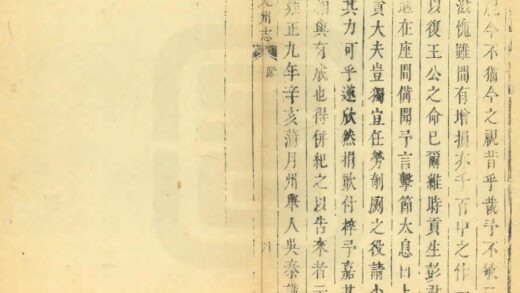 今不猶今之視昔乎哉予不敏
滋愧雖間有增損亦千百中之什一
以復王公之命已爾維時貢生彭君
適在座間備聞予言擊節大息曰上
資大夫豈獨宜任勞剞劂之役請
其力可乎遂欣然捐貲付梓予嘉其
相與有成也得併紀之以告來者云
雍正九年辛亥蒲月州輿人吳泰識
州志